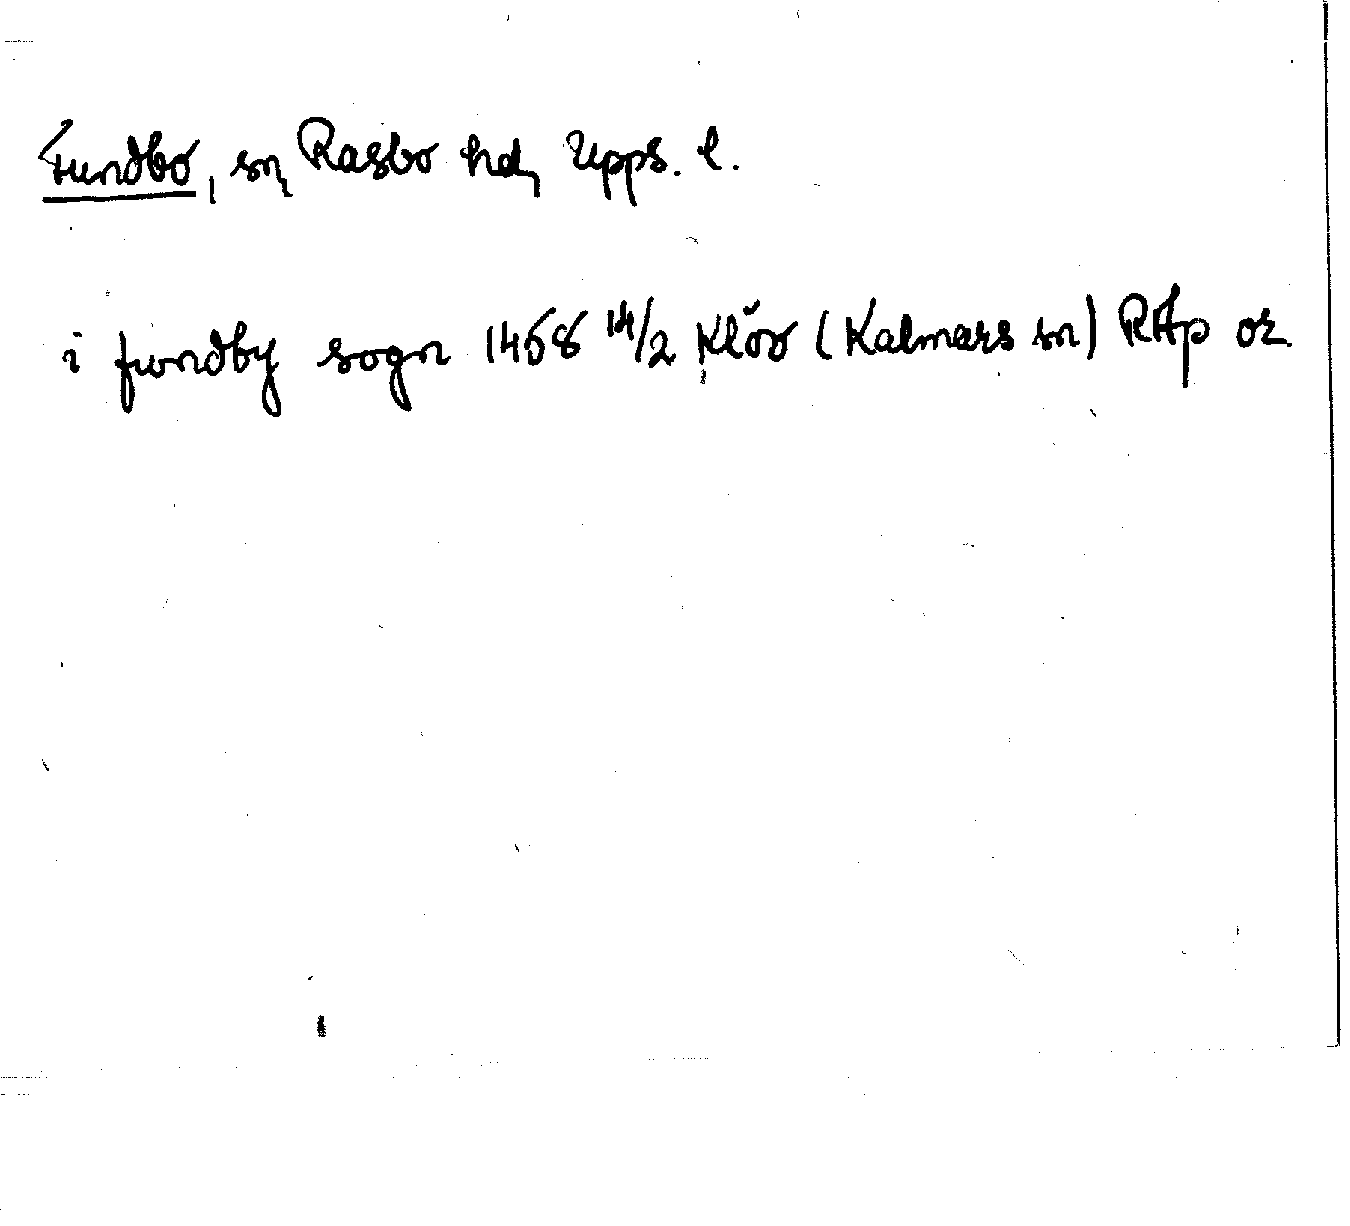 Fundbo, sn, Rasbo hd, Upps. l.
i fundby sogn 1458 14/2 Klöv (Kalmars sn) RAp or.